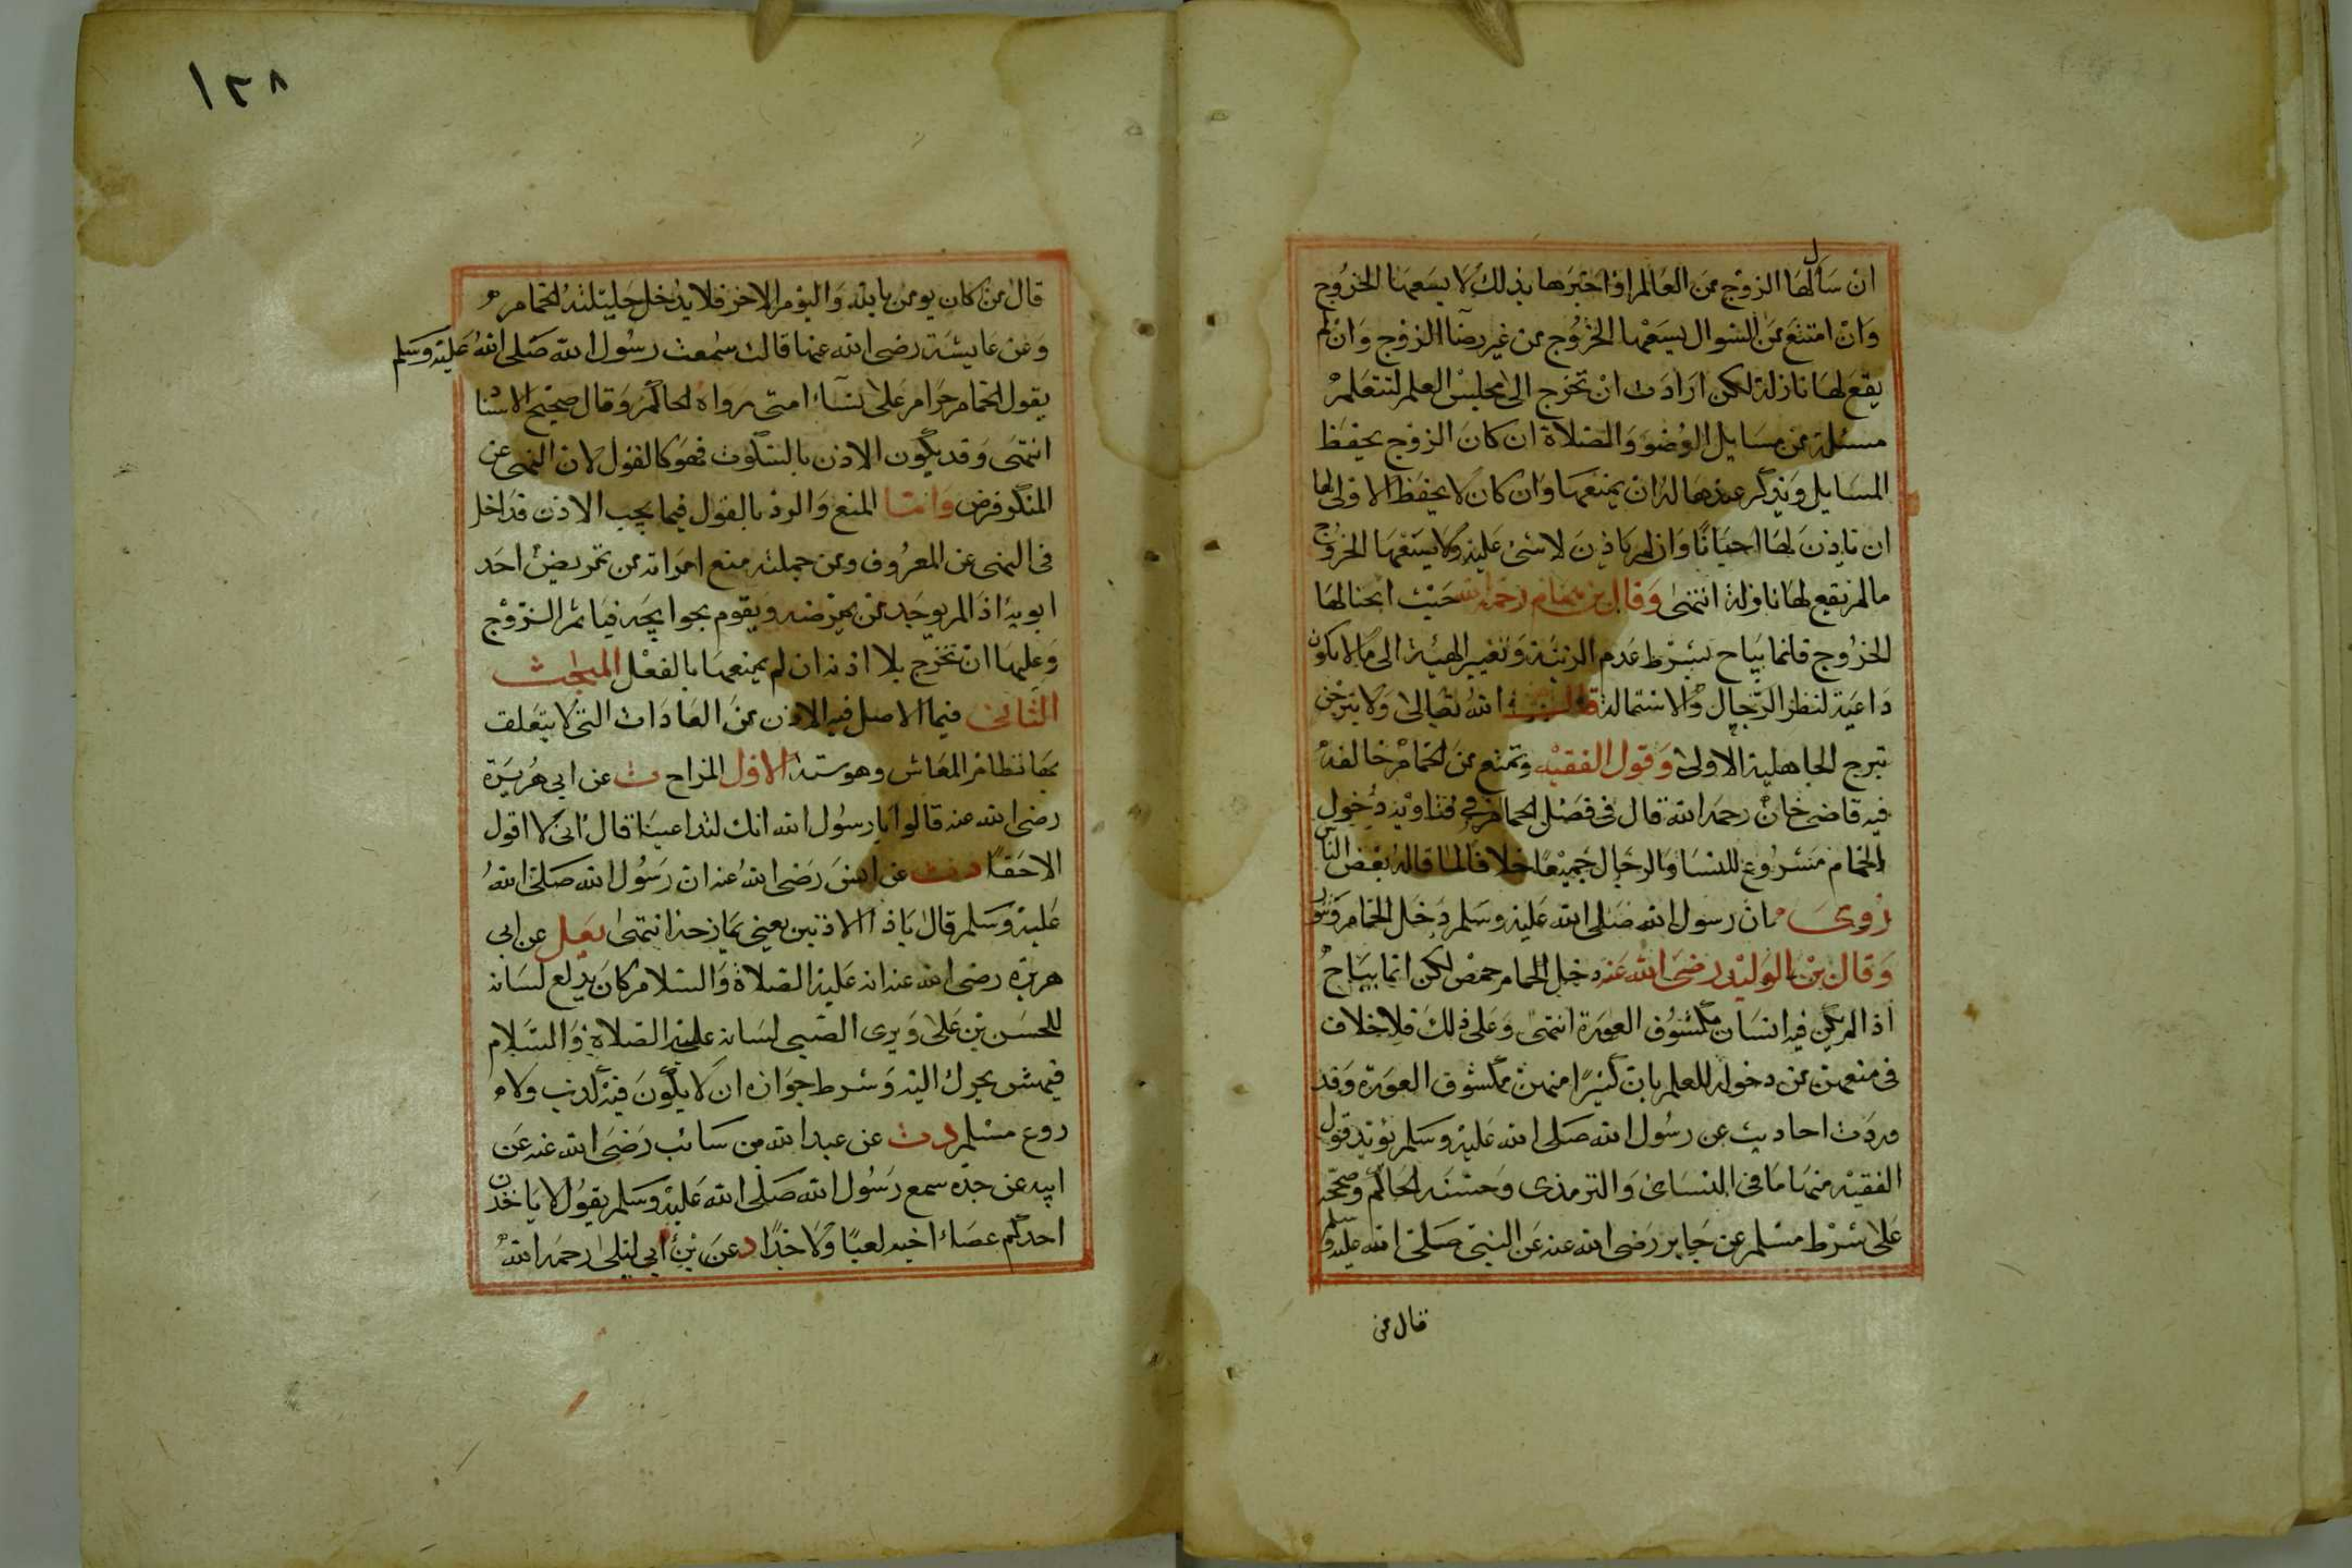 ان سأل لها الزوج من العالم او اخبرها بذلك لا يسعها الخروج
وان امتنع من السوال يسعها الخروج من غير رضا الزوج وان لم
يقع لها نازلة لكن ارادت ان تخرج الى مجلس العلم لتتعلم
مسئلة من مسايل الوضو والصلاة ان كان الزوج يحفظ
المسايل ويذكر عندها له ان يمنعها وان كان لا يحفظ الاولى لها
ان ياذن لها احيانا وان لم ياذن لا شئ عليه ولا يسعها الخروج
ما لم يقع لها نازلة انتهى وقال بن همام رحمه الله حيث ابحنا لها
الخروج فانما يباح بشرط عدم الزينة وتغيير الهيئة الى ما لا يكون
داعية لنظر الرجال والاستمالة قال الله تعالى ولا تبرجن
تبرج الجاهلية الاولى وقول الفقيه وتمنع من الحمام خالفه
فيه قاضي خان رحمه الله قال في فصل الحمام في فتاويه دخول
الحمام مشروع للنسا والرجال جميعا خلافا لما قاله بعض الناس
روى ان رسول الله صلى الله عليه وسلم دخل الحمام وتنور
وقال بن الوليد رضى الله عنه دخل الحمام حمص لكن انما يباح
اذا لم يكن فيه انسان مكشوف العورة انتهى وعلى ذلك فلا خلاف
فى منعهن من دخوله للعلم بان كثيرا منهن مكشوف العورة وقد
وردت احاديث عن رسول الله صلى الله عليه وسلم يؤيد قول
الفقيه منها ما فى النسائ والترمذى وحسنه الحاكم وصححه
على شرط مسلم عن جابر رضى الله عنه عن النبى صلى الله عليه وسلم
قال من
١٣٨
قال من كان يومن بالله واليوم الاخر فلا يدخل حليلته الحمام
وعن عايشة رضى الله عنها قالت سمعت رسول الله صلى الله عليه وسلم
يقول الحمام حرام على نساء امتى رواه الحاكم وقال صحيح الاسنا
انتهى وقد يكون الاذن بالسكوت فهو كالقول لان النهى عن
المنكر فرض واما المنع والرد بالقول فيما يجب الاذن فداخل
فى النهى عن المعروف ومن جملته منع امراته من تمريض احد
ابويه اذا لم يوجد من يمرضه ويقوم بحوايجه فياثم الزوج
وعليها ان تخرج بلا اذنه ان لم يمنعها بالفعل المبحث
الثانى فيما الاصل فيه الاذن من العادات التى لا يتعلق
بها نظام المعاش وهو ستة الاول المزاح ت عن ابى هريرة
رضى الله عنه قالوا يا رسول الله انك لتداعبنا قال انى لا اقول
الا حقا دت عن انس رضى الله عنه ان رسول الله صلى الله
عليه وسلم قال يا ذا الاذنين يعنى يمازحه انتهى يعلى عن ابى
هريرة رضى الله عنه انه عليه الصلاة والسلام كان يدلع لسانه
للحسن بن على ويرى الصبى لسانه عليه الصلاة والسلام
فيهش يحرك اليه وشرط جوازه ان لا يكون فيه كذب ولا
روع مسلم دت عن عبد الله بن سائب رضى الله عنه عن
ابيه عن جده سمع رسول الله صلى الله عليه وسلم يقول لا ياخذن
احدكم عصاء اخيه لعبا ولا جدا د عن بن ابى ليلى رحمه الله